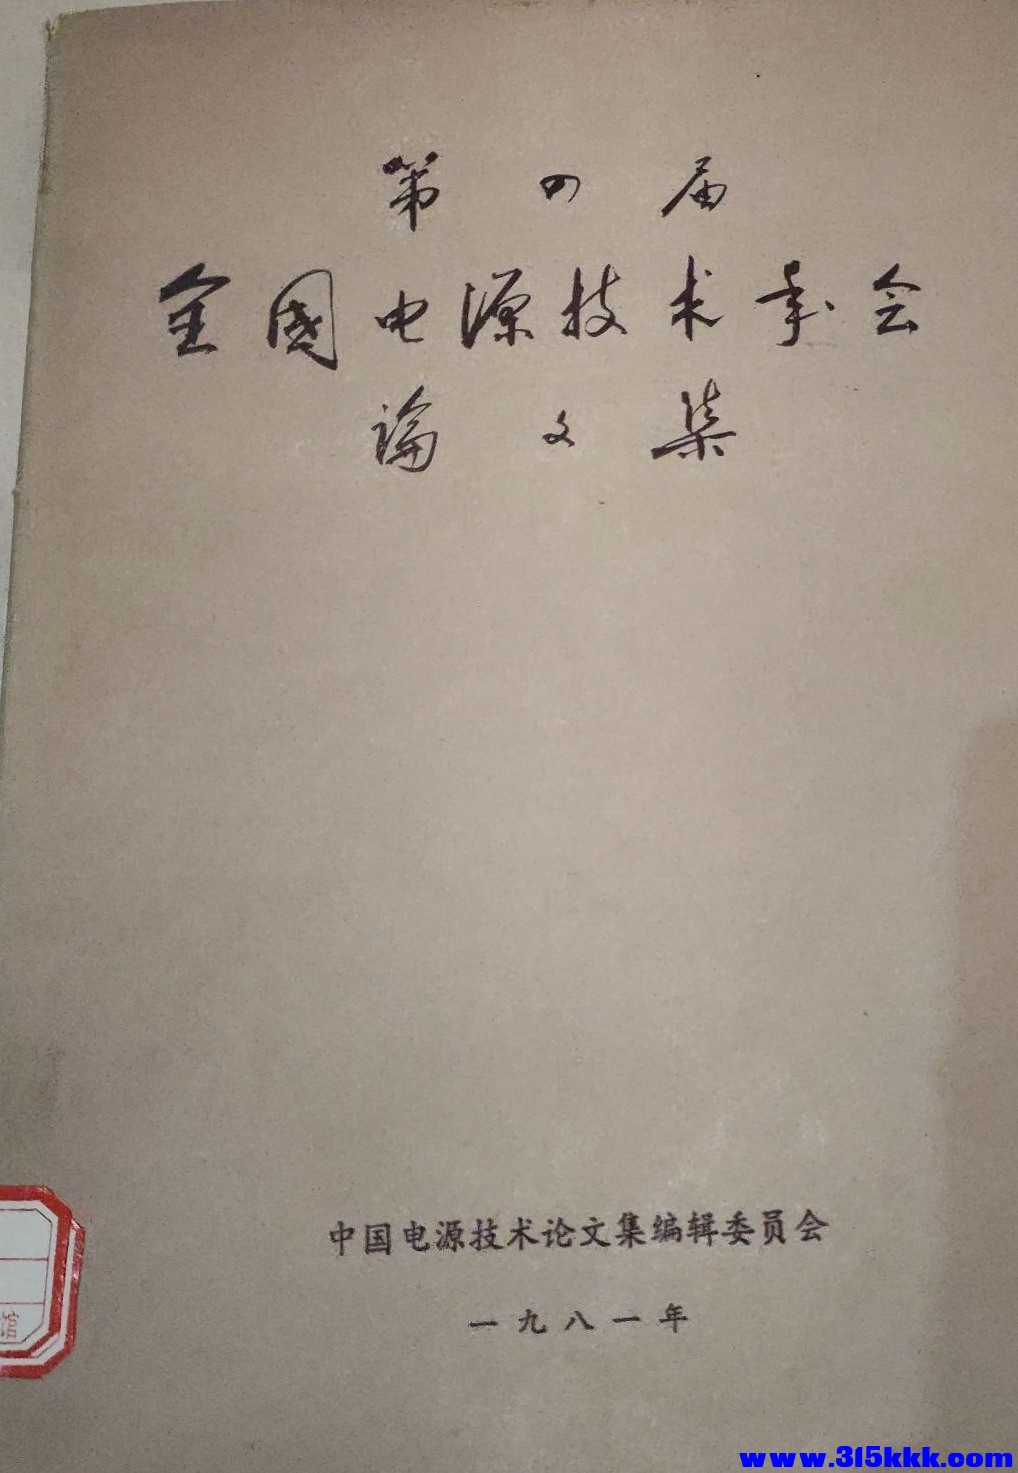 第四届
全国电源技术年会
論文集
中国电源技术论文集编辑委员会
一九八一年
馆
www.315kkk.com